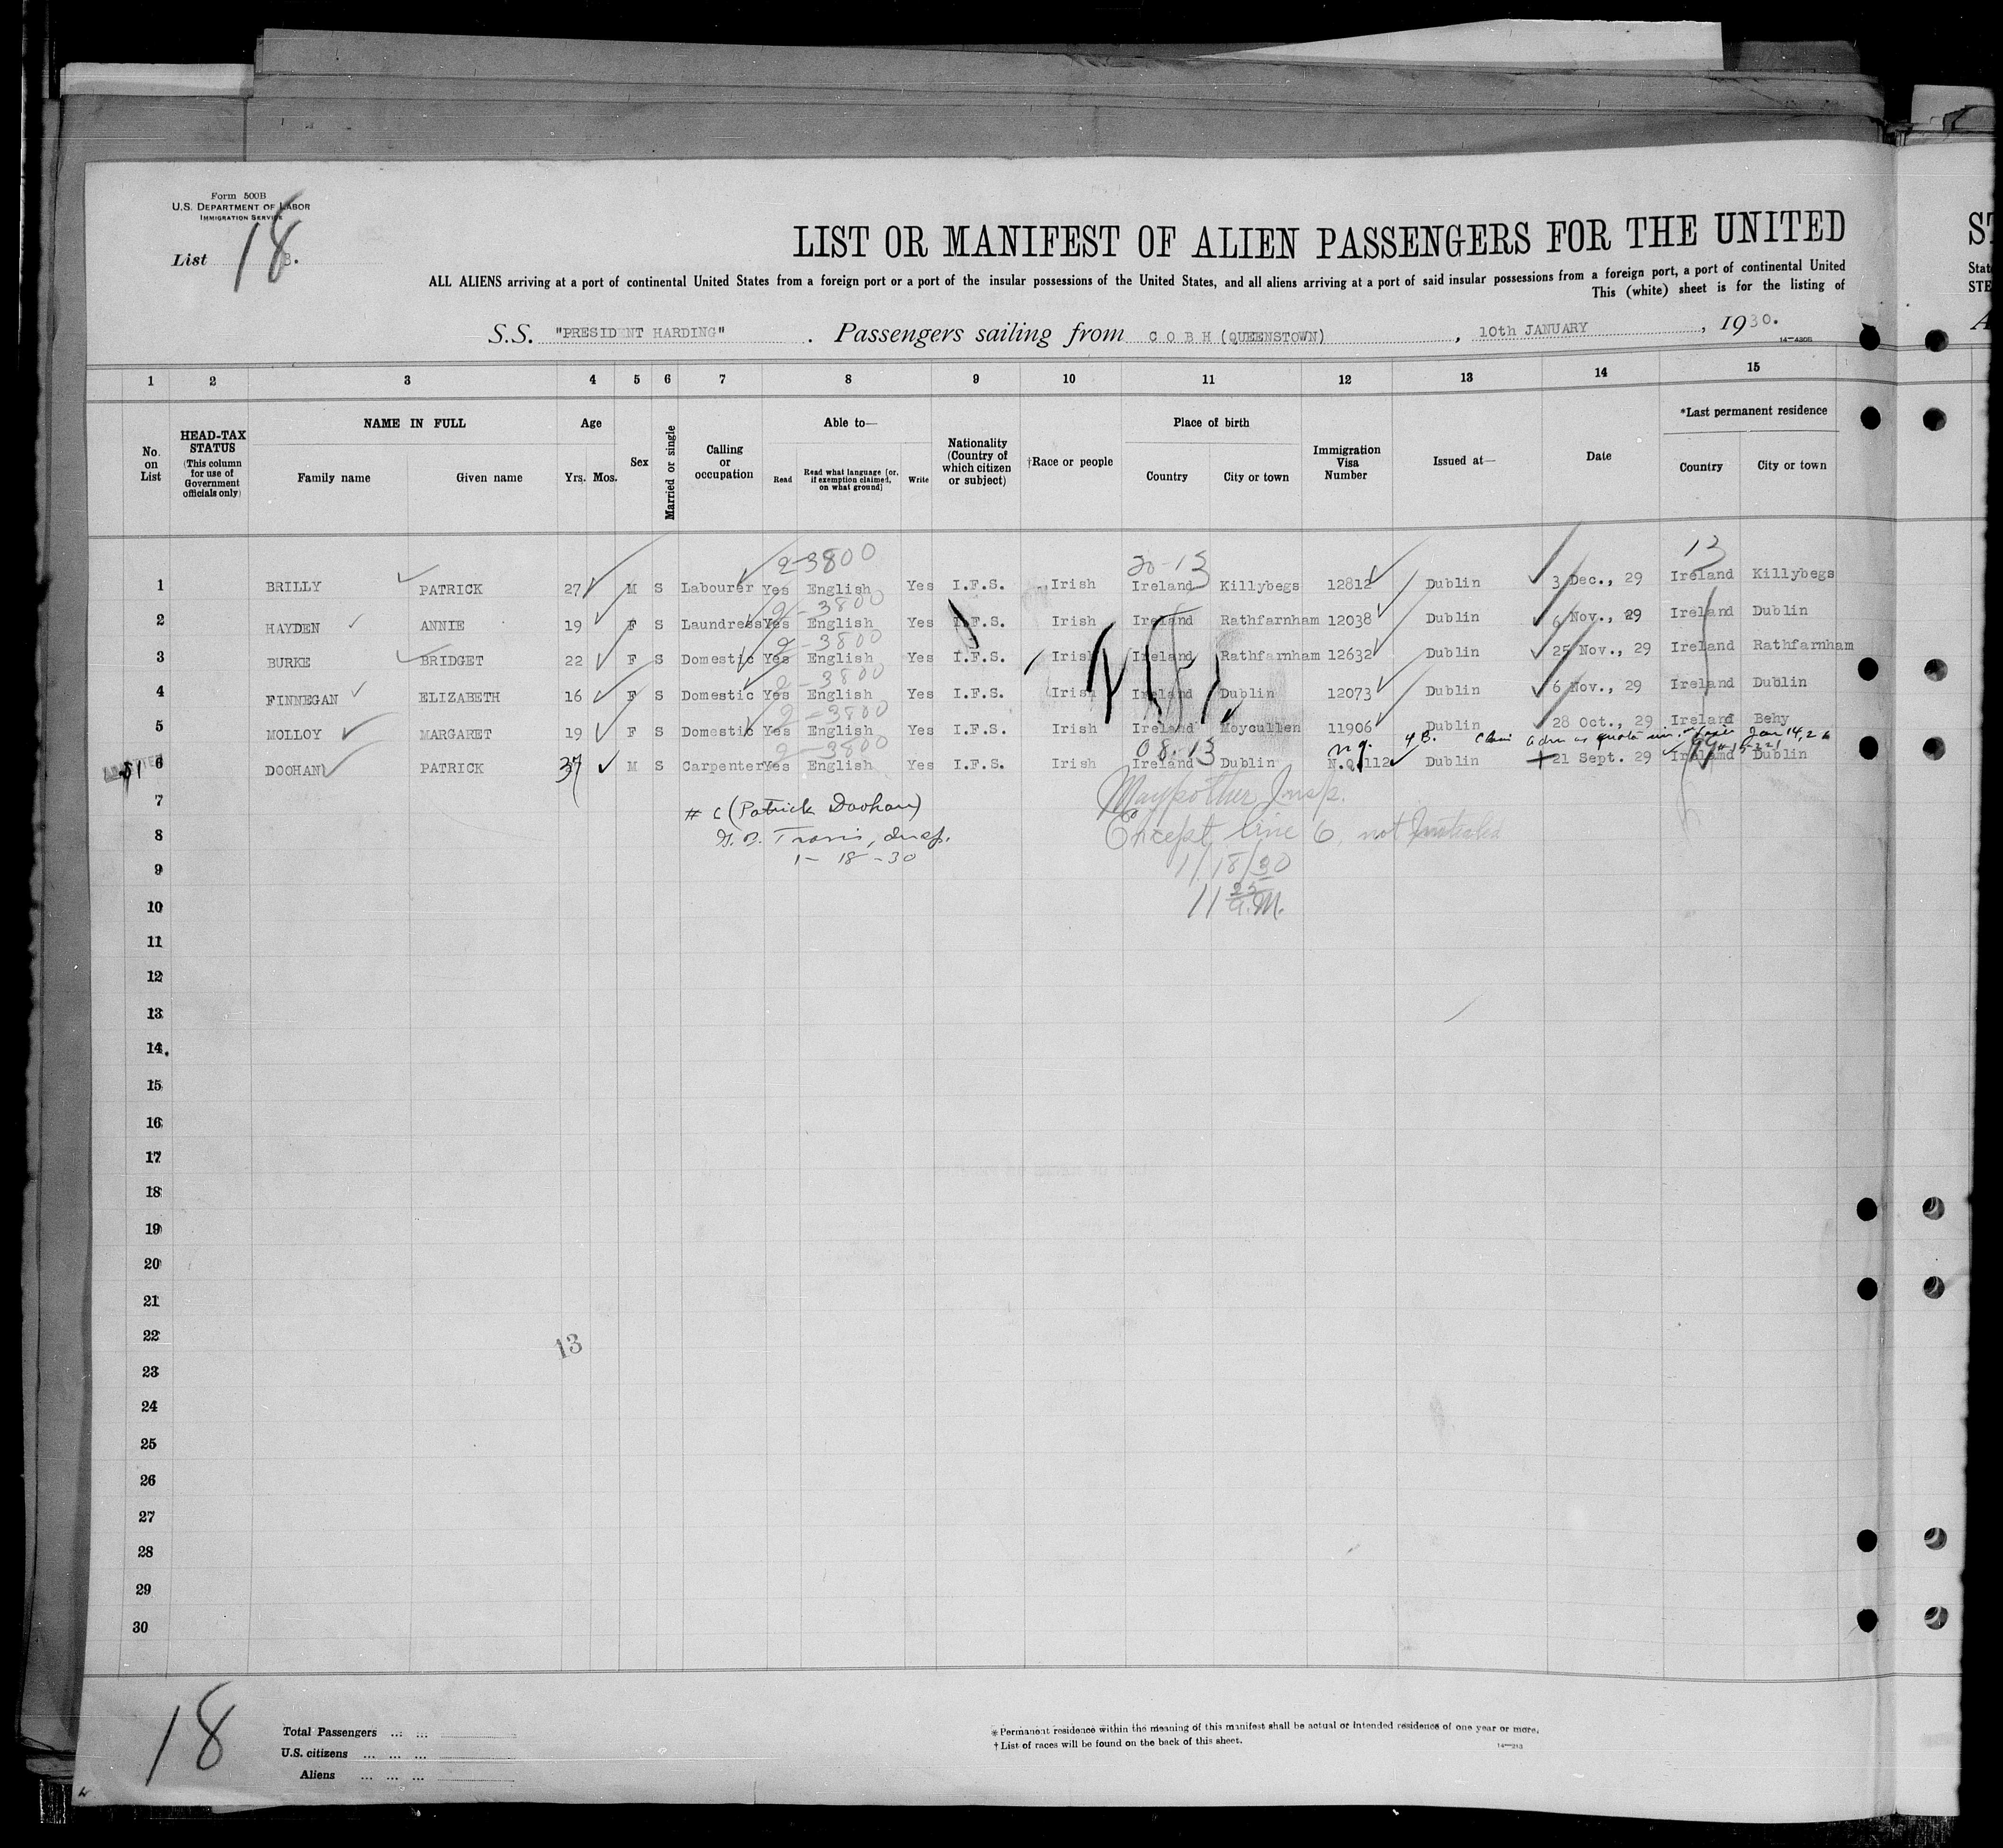 Form 500B
U.S. DEPARTMENT OF LABOR
IMMIGRATION SERVICE
List 18 B.
LIST OR MANIFEST OF ALIEN PASSENGERS FOR THE UNITED
ALL ALIENS arriving at a port of continental United States from a foreign port or a port of the insular possessions of the United States, and all aliens arriving at a port of said insular possessions from a foreign port, a port of continental United
This (white) sheet is for the listing of
S.S. "PRESIDENT HARDING" . Passengers sailing from COBH (QUEENSTOWN) , 10th JANUARY , 1930.
1 2 3 4 5 6 7 8 9 10 11 12 13 14 15
No. on List
HEAD-TAX STATUS (This column for use of Government officials only)
NAME IN FULL
Family name Given name
Age
Yrs. Mos.
Sex
Married or single
Calling or occupation
Able to—
Read
Read what language [or, if exemption claimed, on what ground]
Write
Nationality (Country of which citizen or subject)
†Race or people
Place of birth
Country City or town
Immigration Visa Number
Issued at—
Date
*Last permanent residence
Country City or town
2-3800 20-13 13
1 BRILLY PATRICK 27 M S Labourer Yes English Yes I.F.S. Irish Ireland Killybegs 12812 Dublin 3 Dec., 29 Ireland Killybegs
2-3800
2 HAYDEN ANNIE 19 F S Laundress Yes English Yes I.F.S. Irish Ireland Rathfarnham 12038 Dublin 6 Nov., 29 Ireland Dublin
2-3800
3 BURKE BRIDGET 22 F S Domestic Yes English Yes I.F.S. Irish Ireland Rathfarnham 12632 Dublin 25 Nov., 29 Ireland Rathfarnham
2-3800
4 FINNEGAN ELIZABETH 16 F S Domestic Yes English Yes I.F.S. Irish Ireland Dublin 12073 Dublin 6 Nov., 29 Ireland Dublin
2-3800
5 MOLLOY MARGARET 19 F S Domestic Yes English Yes I.F.S. Irish Ireland Moycullen 11906 Dublin 28 Oct., 29 Ireland Behy
2-3800 08-13 n.q. as quota Jan 14, 26
6 DOOHAN PATRICK 37 M S Carpenter Yes English Yes I.F.S. Irish Ireland Dublin N.Q.112 Dublin 21 Sept. 29 Ireland Dublin
7 # 6 (Patrick Doohan) Maypother Insp.
8 Travis, Insp. Except line 6, not
1-18-30
9 1/18/30
10 11 23 A.M.
11
12
13
14
15
16
17
18
19
20
21
22
13
23
24
25
26
27
28
29
30
18
Total Passengers ... ...
U.S. citizens ... ... ...
Aliens ... ... ...
*Permanent residence within the meaning of this manifest shall be actual or intended residence of one year or more.
†List of races will be found on the back of this sheet.